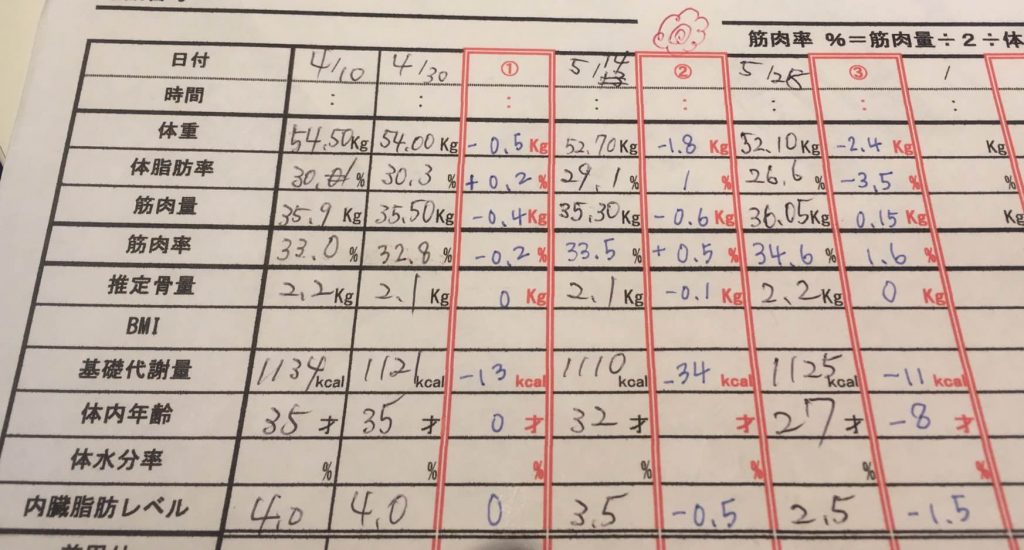 筋肉率 %=筋肉量÷2÷体
日付 4/10 4/30 ① 5/14 ② 5/28 ③ /
時間 : : : : : : : :
体重 54.50Kg 54.00Kg -0.5Kg 52.70Kg -1.8Kg 52.10Kg -2.4Kg Kg
体脂肪率 30.1% 30.3% +0.2% 29.1% 1% 26.6% -3.5% %
筋肉量 35.9Kg 35.50Kg -0.4Kg 35.30Kg -0.6Kg 36.05Kg 0.15Kg Kg
筋肉率 33.0% 32.8% -0.2% 33.5% +0.5% 34.6% 1.6%
推定骨量 2.2Kg 2.1Kg 0Kg 2.1Kg -0.1Kg 2.2Kg 0Kg
BMI
基礎代謝量 1134kcal 1121kcal -13kcal 1110kcal -34kcal 1125kcal -11kcal
体内年齢 35才 35才 0才 32才 才 27才 -8才
体水分率 % % % % % % %
内臓脂肪レベル 4.0 4.0 0 3.5 -0.5 2.5 -1.5